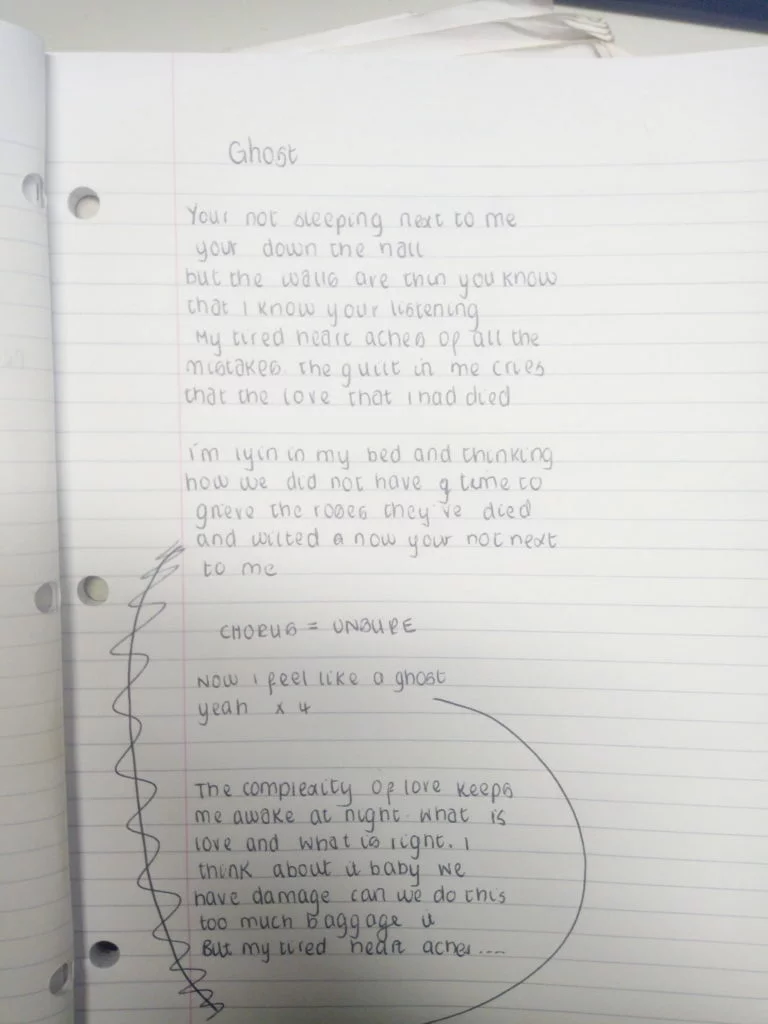 Ghost
Your not sleeping next to me
your down the hall
but the walls are thin you know
that I know your listening
My tired heart aches of all the
mistakes. The guilt in me cries
that the love that I had died
i'm lyin in my bed and thinking
how we did not have g time to
grieve the roses they've died
and wilted a now your not next
to me
CHORUS = UNSURE
Now I feel like a ghost
yeah x 4
The complexity of love keeps
me awake at night. what is
love and what is right. I
think about it baby we
have damage can we do this
too much baggage it
But my tired heart aches....